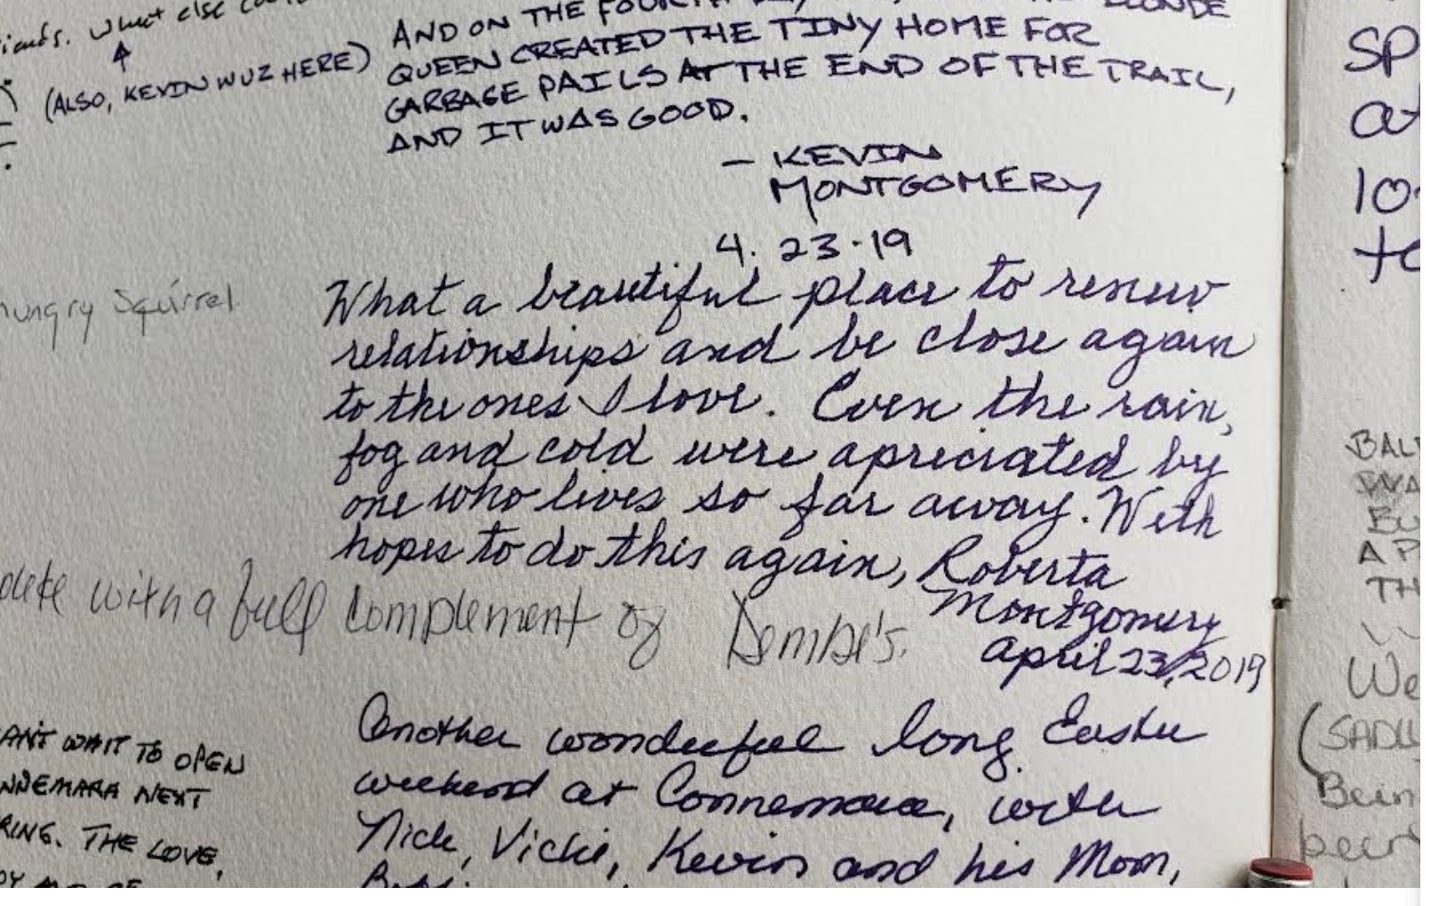 what else
(ALSO, KEVIN WUZ HERE)
AND ON THE
QUEEN CREATED THE TINY HOME FOR
GARBAGE PAILS AT THE END OF THE TRAIL,
AND IT WAS GOOD.
– KEVIN
MONTGOMERY
4.23.19
Squirrel
What a beautiful place to renew
relationships and be close again
to the ones I love. Even the rain,
fog and cold were apreciated by
one who lives so far away. With
hopes to do this again, Roberta
Montgomery
April 23, 2019
with a full complement of Dembe's.
Another wonderful long Easter
weekend at Connemara, with
Nick, Vicki, Kevin and his Mom,
WAIT TO OPEN
NEXT
THE LOVE,
We